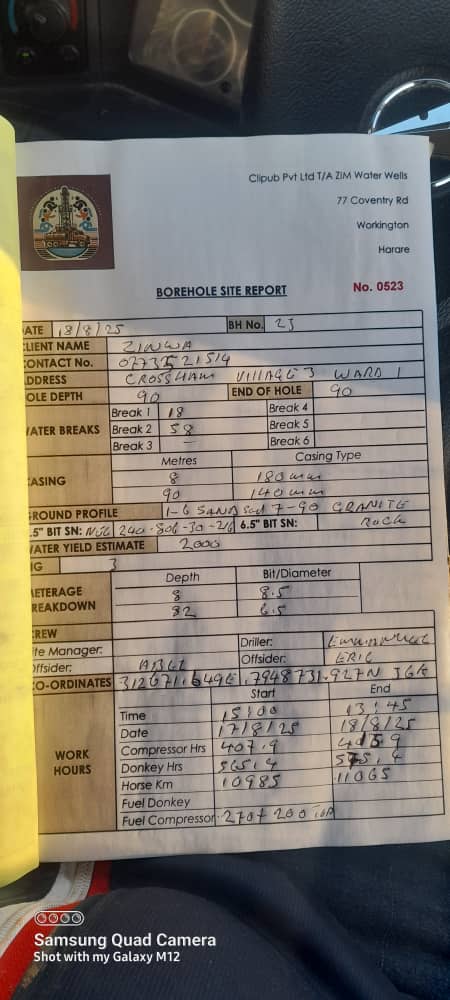 Clipub Pvt Ltd T/A ZIM Water Wells
77 Coventry Rd
Workington
Harare
BOREHOLE SITE REPORT No. 0523
ATE 18/8/25 BH No. 23
LIENT NAME ZINWA
ONTACT No. 0773521514
DDRESS CROSSHAM VILLAGE 3 WARD 1
OLE DEPTH 90 END OF HOLE 90
ATER BREAKS Break 1 18 Break 4
Break 2 58 Break 5
Break 3 - Break 6
ASING Metres Casing Type
8 180mm
90 140mm
GROUND PROFILE 1-6 SAND 7-90 GRANITE
Rock
.5" BIT SN: 240-806-30- 6.5" BIT SN:
ATER YIELD ESTIMATE 2000
IG 3
METERAGE REAKDOWN Depth Bit/Diameter
8 8.5
82 6.5
CREW
ite Manager: Driller:
Offsider: ABEL Offsider: ERIC
O-ORDINATES 312671.649E .7948731.927N
Start End
WORK HOURS
Time 15:00 13:45
Date 17/8/25 18/8/25
Compressor Hrs 407.9
Donkey Hrs 565.4
Horse Km 10985 11065
Fuel Donkey
Fuel Compressor 270+200
Samsung Quad Camera
Shot with my Galaxy M12